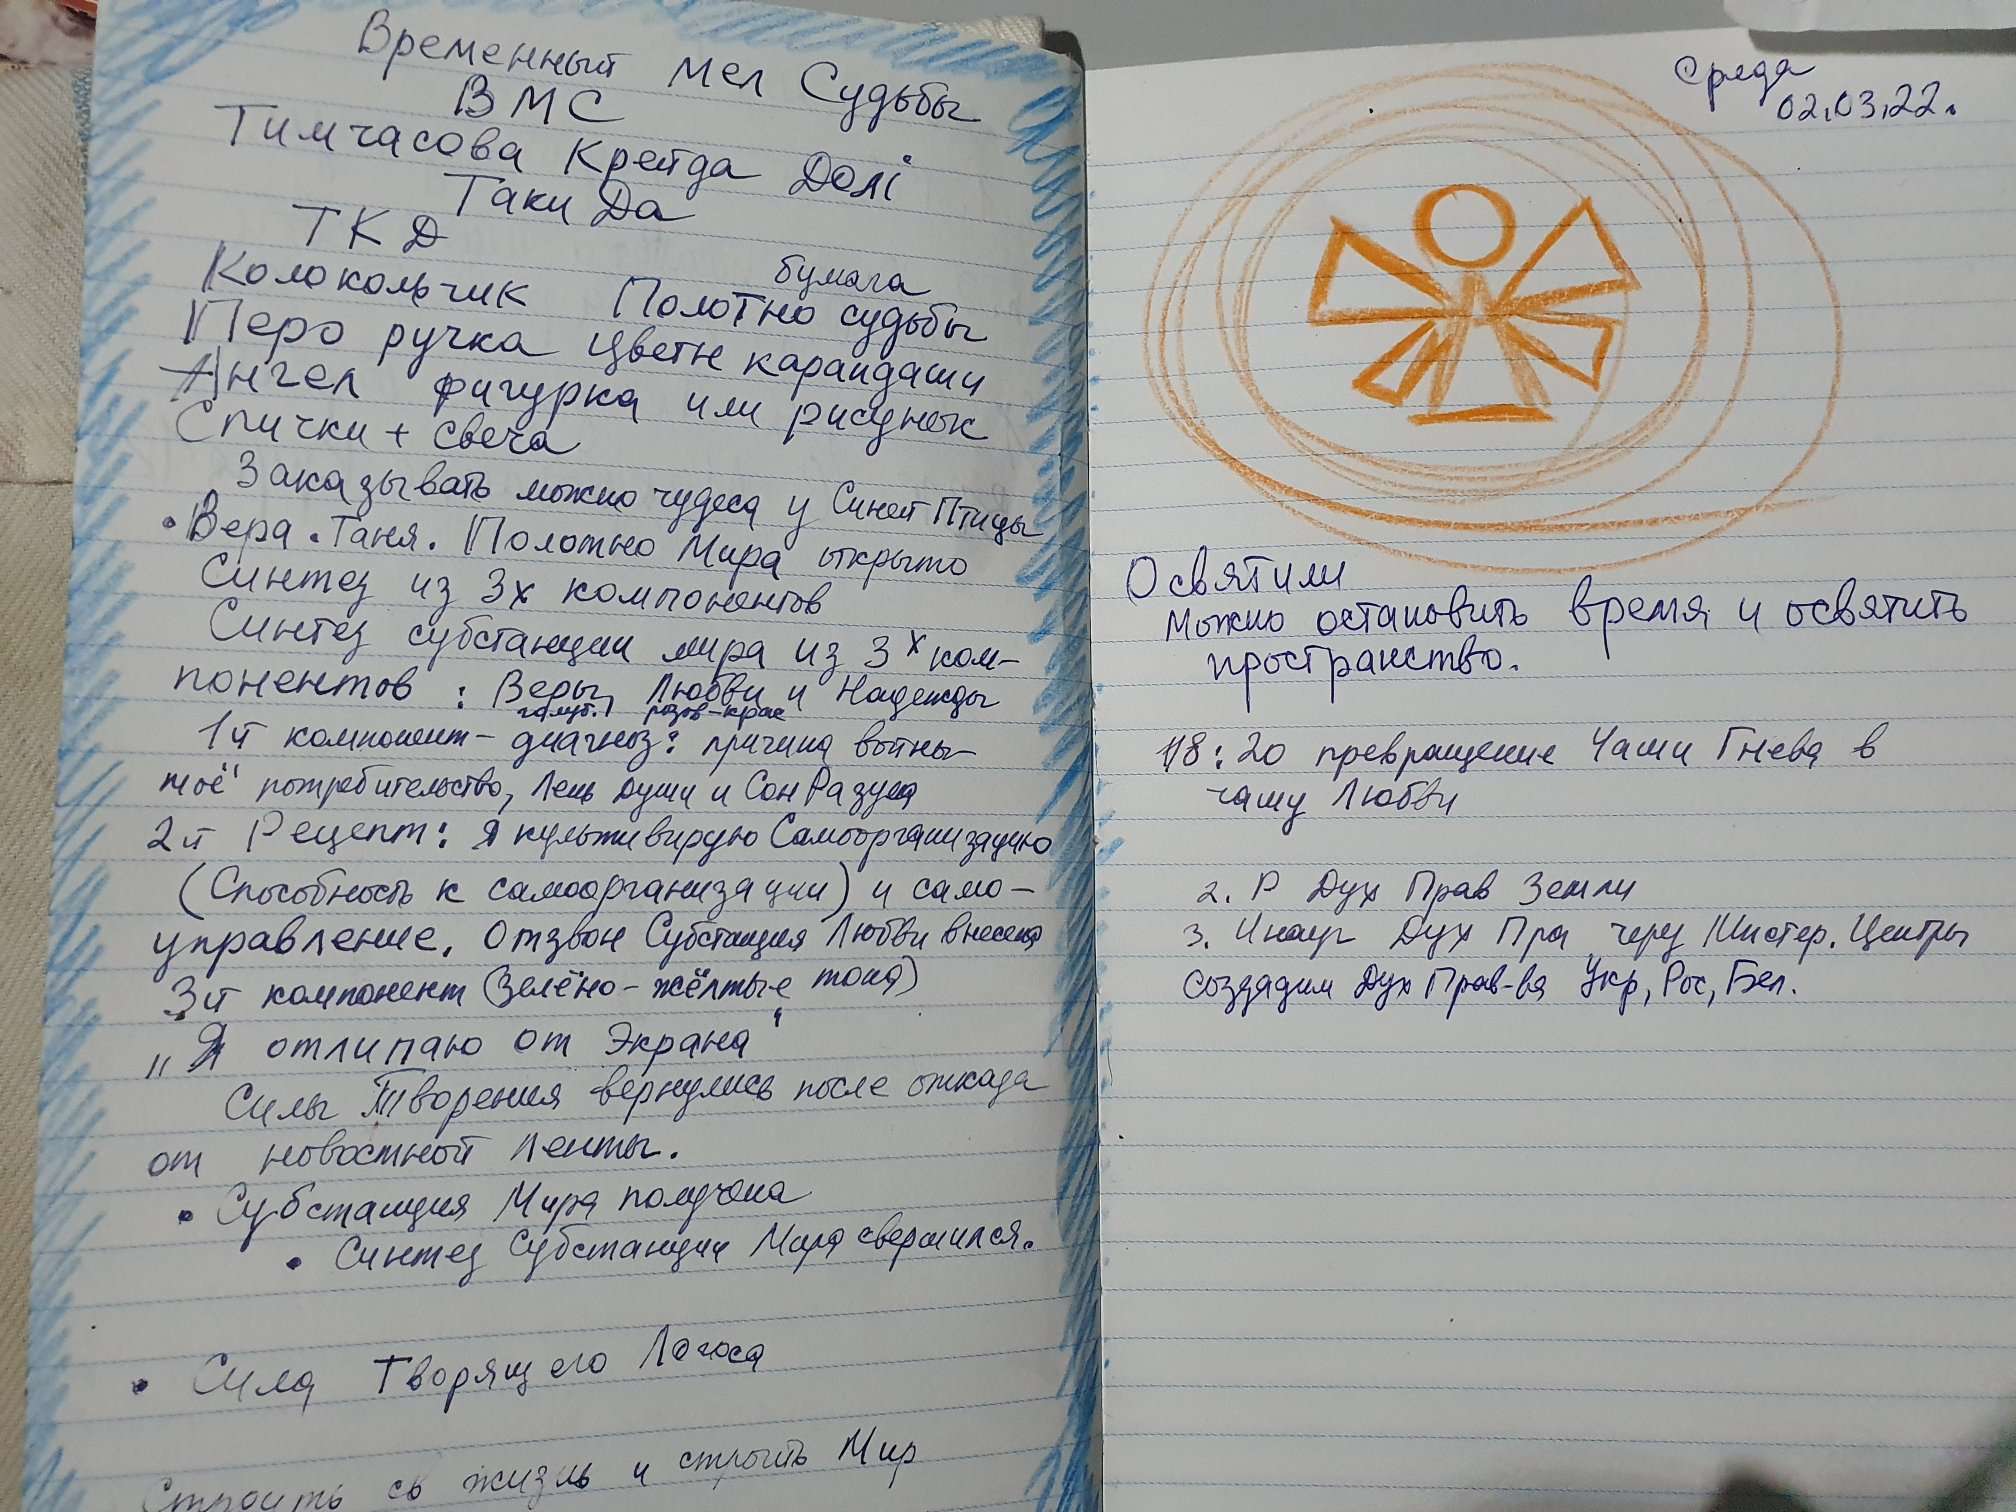 Временный мел Судьбы
ВМС
Тимчасова Крейда Долі
Таки Да
ТКД
бумага
Колокольчик Полотно судьбы
Перо ручка цветн карандаши
Ангел фигурка или рисунок
Спички + свеча
Заказывать можно чудеса у Синей Птицы
• Вера. Таня. Полотно Мира открыто
Синтез из 3х компонентов
Синтез субстанции мира из 3х ком-
понентов : Веры, Любви и Надежды
голуб. розов-крас
1й компонент - диагноз: причина войны -
моё потребительство, Лень Души и Сон Разума
2й Рецепт: Я культивирую Самоорганизацию
(Способность к самоорганизации) и само-
управление. Отзвон Субстанция Любви внесена
3й компонент (Зелёно-жёлтые тона)
„Я отлипаю от Экрана"
Силы Творения вернулись после отказа
от новостной ленты.
• Субстанция Мира получена
• Синтез Субстанции Мира свершился.
• Сила Творящего Логоса
Строить св жизнь и строить Мир
Среда
02.03.22.
Освятили
Можно остановить время и освятить
пространство.
18:20 превращение Чаши Гнева в
чашу Любви
2. Р Дух Прав Земли
3. Инауг Дух Пра через Мистер. Центры
создадим Дух Прав-ва Укр, Рос, Бел.